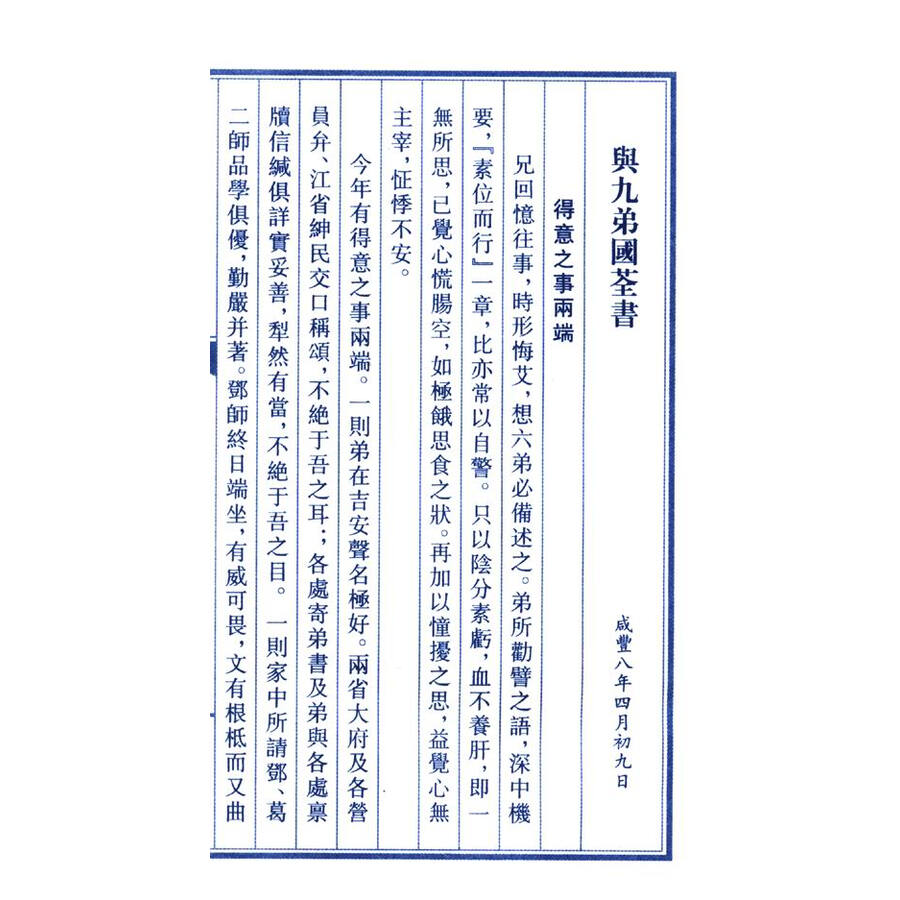 與九弟國荃書
咸豐八年四月初九日
得意之事兩端
兄回憶往事，時形悔艾，想六弟必備述之。弟所勸譬之語，深中機
要，『素位而行』一章，比亦常以自警。只以陰分素虧，血不養肝，即一
無所思，已覺心慌腸空，如極餓思食之狀。再加以憧擾之思，益覺心無
主宰，怔悸不安。
今年有得意之事兩端。一則弟在吉安聲名極好。兩省大府及各營
員弁、江省紳民交口稱頌，不絶于吾之耳；各處寄弟書及弟與各處禀
牘信緘俱詳實妥善，犁然有當，不絶于吾之目。一則家中所請鄧、葛
二師品學俱優，勤嚴并著。鄧師終日端坐，有威可畏，文有根柢而又曲